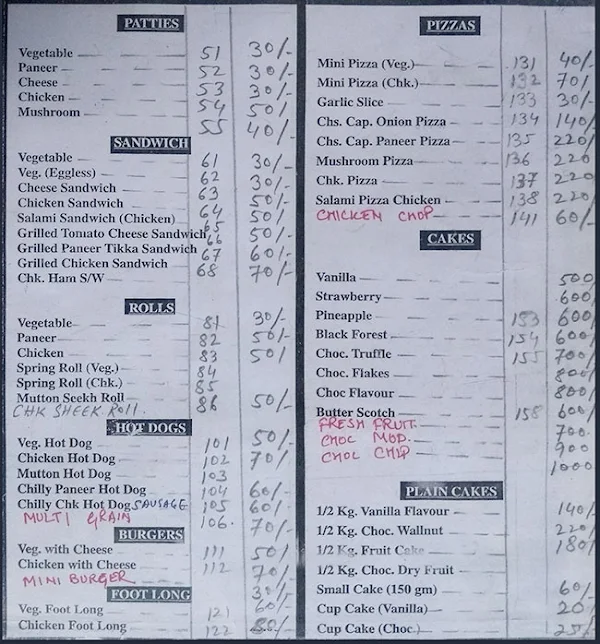 PATTIES
Vegetable 51 30/-
Paneer 52 30/-
Cheese 53 30/-
Chicken 54 50/-
Mushroom 55 40/-
SANDWICH
Vegetable 61 30/-
Veg. (Eggless) 62 30/-
Cheese Sandwich 63 50/-
Chicken Sandwich 64 50/-
Salami Sandwich (Chicken) 65 50/-
Grilled Tomato Cheese Sandwich 66 50/-
Grilled Paneer Tikka Sandwich 67 60/-
Grilled Chicken Sandwich 68 70/-
Chk. Ham S/W
ROLLS
Vegetable 81 30/-
Paneer 82 50/-
Chicken 83 50/
Spring Roll (Veg.) 84
Spring Roll (Chk.) 85
Mutton Seekh Roll 86 50/-
CHK SHEEK Roll.
HOT DOGS
Veg. Hot Dog 101 50/-
Chicken Hot Dog 102 70/-
Mutton Hot Dog 103
Chilly Paneer Hot Dog 104 60/-
Chilly Chk Hot Dog SAUSAGE 105 60/-
MULTI GRAIN 106. 70/-
BURGERS
Veg. with Cheese 111 50/
Chicken with Cheese 112 70/
MINI BURGER 30/-
FOOT LONG
Veg. Foot Long 121 60/-
Chicken Foot Long 122 80/-
PIZZAS
Mini Pizza (Veg.) 131 40/-
Mini Pizza (Chk.) 132 70/-
Garlic Slice 133 30/-
Chs. Cap. Onion Pizza 134 140/
Chs. Cap. Paneer Pizza 135 220/
Mushroom Pizza 136 220
Chk. Pizza 137 220
Salami Pizza Chicken 138 220/
CHICKEN CHOP 141 60/-
CAKES
Vanilla 500
Strawberry 600/
Pineapple 153 600/
Black Forest 154 600/
Choc. Truffle 155 700/
Choc. Flakes 800/
Choc Flavour 800/
Butter Scotch 158 600/
FRESH FRUIT 700.
CHOC MOD. 900
CHOL CHIP 1000
PLAIN CAKES
1/2 Kg. Vanilla Flavour 140/
1/2 Kg. Choc. Wallnut 220/
1/2 Kg. Fruit Cake 180/
1/2 Kg. Choc. Dry Fruit
Small Cake (150 gm) 60/
Cup Cake (Vanilla) 20/
Cup Cake (Choc.) 25/